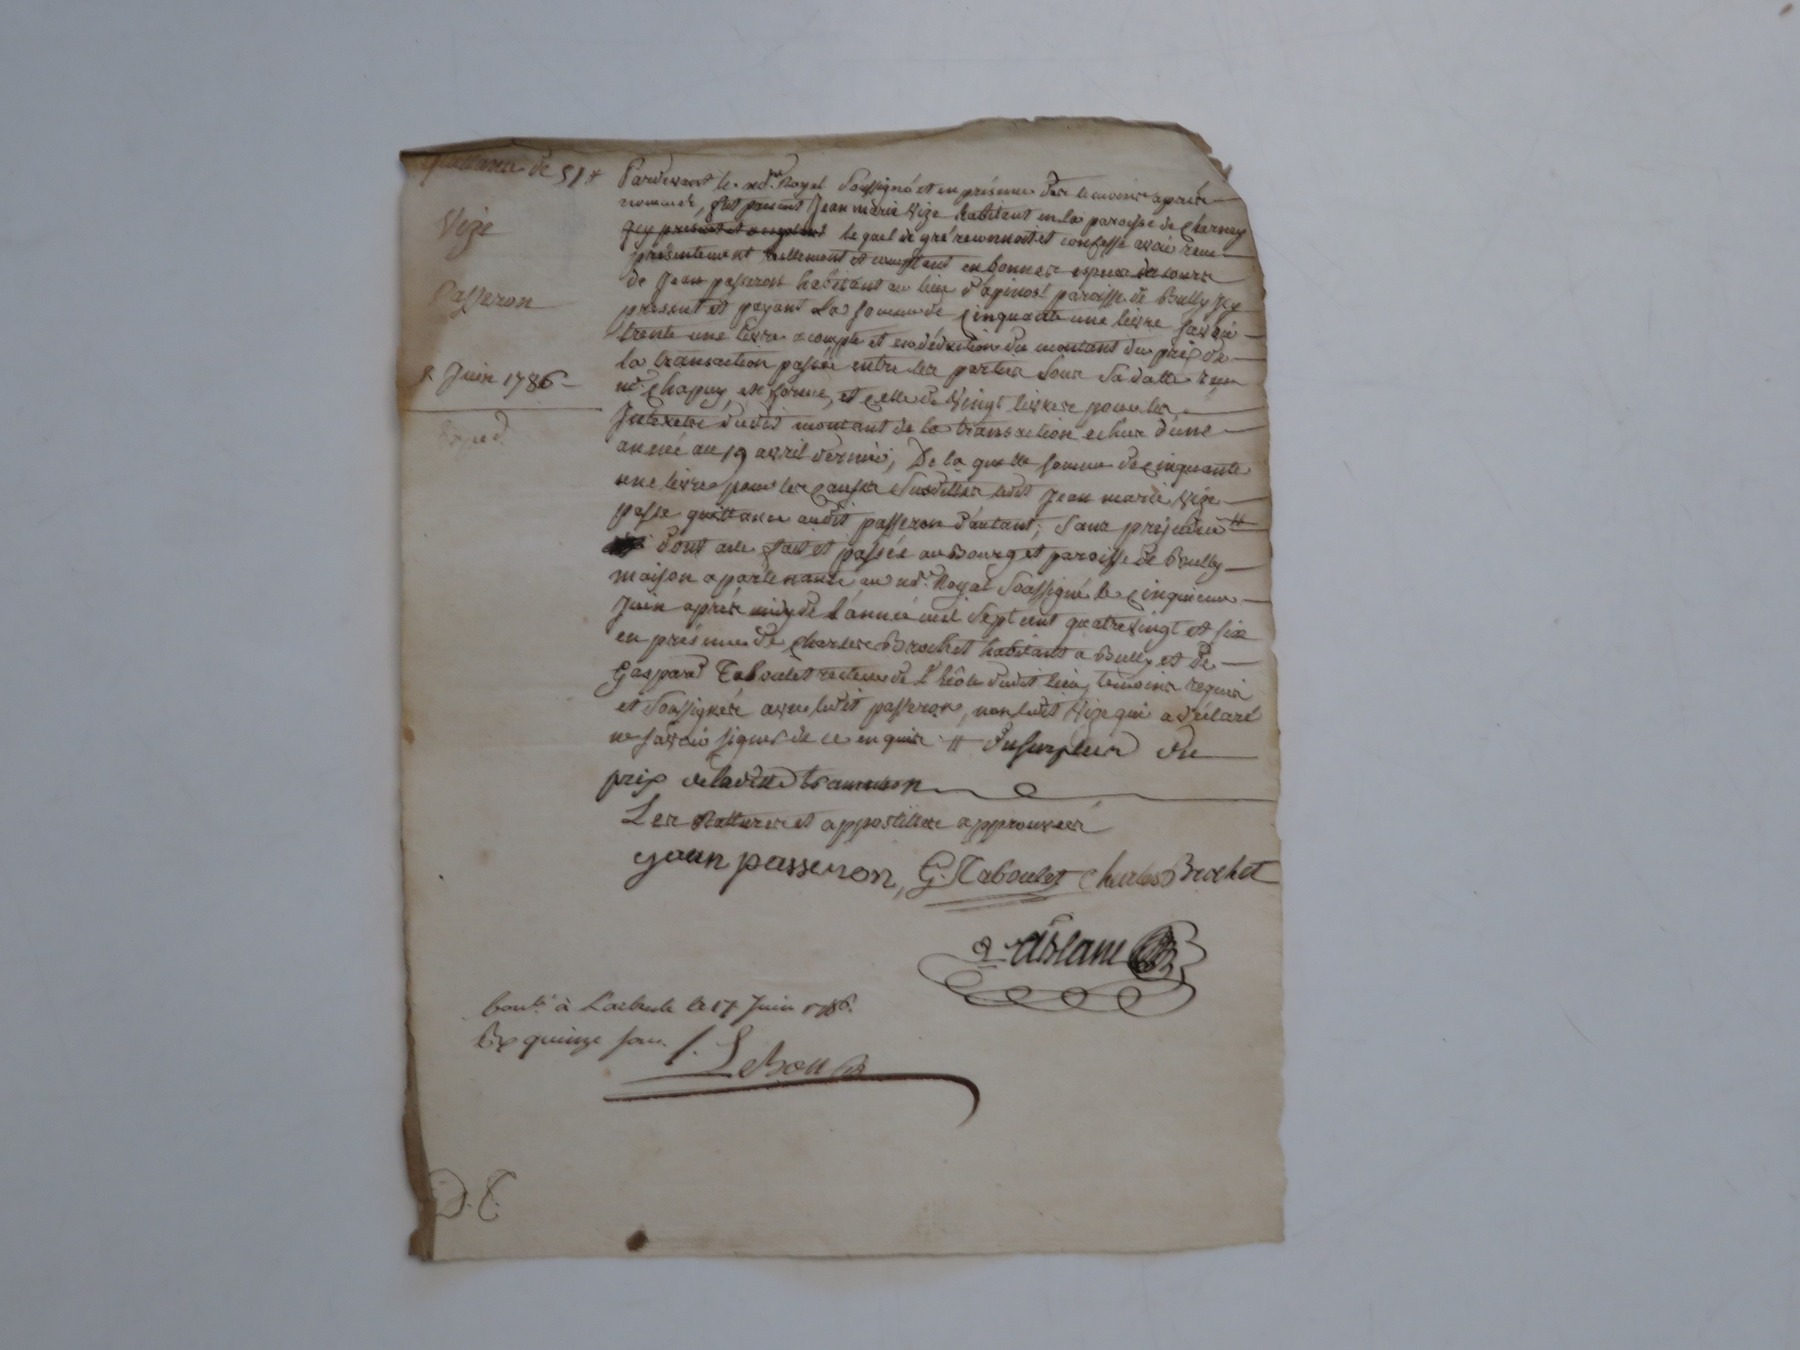 quittance de 51 ₶
Vize
Passeron
5 Juin 1786
Exped.
Pardevant le no.re Royal soussigné et en présence des temoins après
nommés, fut présent Jean marie Vize habitant en la paroisse de
le quel de gré reconnoit et confesse avoir reçu
présentement réellement et comptant en bonnes espèces de cours
de Jean passeron habitant au lieu d'apinost paroisse de Bully Jcy
présent et payant La somme de cinquante une livre savoir
trente une livre a compte et en déduction du montant du prix de
la transaction passée entre les parties sous sa datte reçu
me. Chapuy, en forme, et celle de Vingt livres pour les
Interets dudit montant de la transaction echus d'une
année au 19 avril dernier, De la quelle somme de cinquante
une livre pour les causes susdittes ledit Jean marie Vize
passe quittance audit passeron d'autant, sans préjudice #
dont acte fait et passée au Bourg et paroisse de Bully
maison apartenante au no.re Royal soussigné le cinquieme
Juin après midy de l'année mil sept cent quatrevingt et six
en présence de Charles Brochet habitant a Bully et de
Gaspard Taboulet recteur de l'Ecole dudit lieu, temoins requis
et soussignés avec ledit passeron, non ledit Vize qui a déclaré
ne savoir signer de ce enquis # du surplus du
prix de laditte transaction
Les Rattures et appostilles approuvées
jean passeron, G. Taboulet Charles Brochet
Con.lé à Larbresle le 17 Juin 1786.
quinze sous.